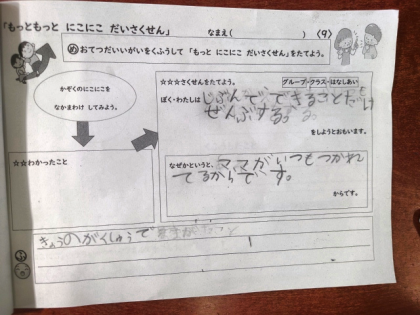 「もっともっと にこにこ だいさくせん」 なまえ( ) 〈9〉
め おてつだいいがいをくふうして「もっと にこにこ だいさくせん」をたてよう。
かぞくのにこにこを
なかまわけ してみよう。
☆☆☆さくせんをたてよう。 グループ・クラス・はなしあい
ぼく・わたしは じぶんでできることだけ
ぜんぶする。
をしようとおもいます。
なぜかというと、ママがいつもつかれ
てるからです。
からです。
☆☆わかったこと
きょうのがくしゅうで